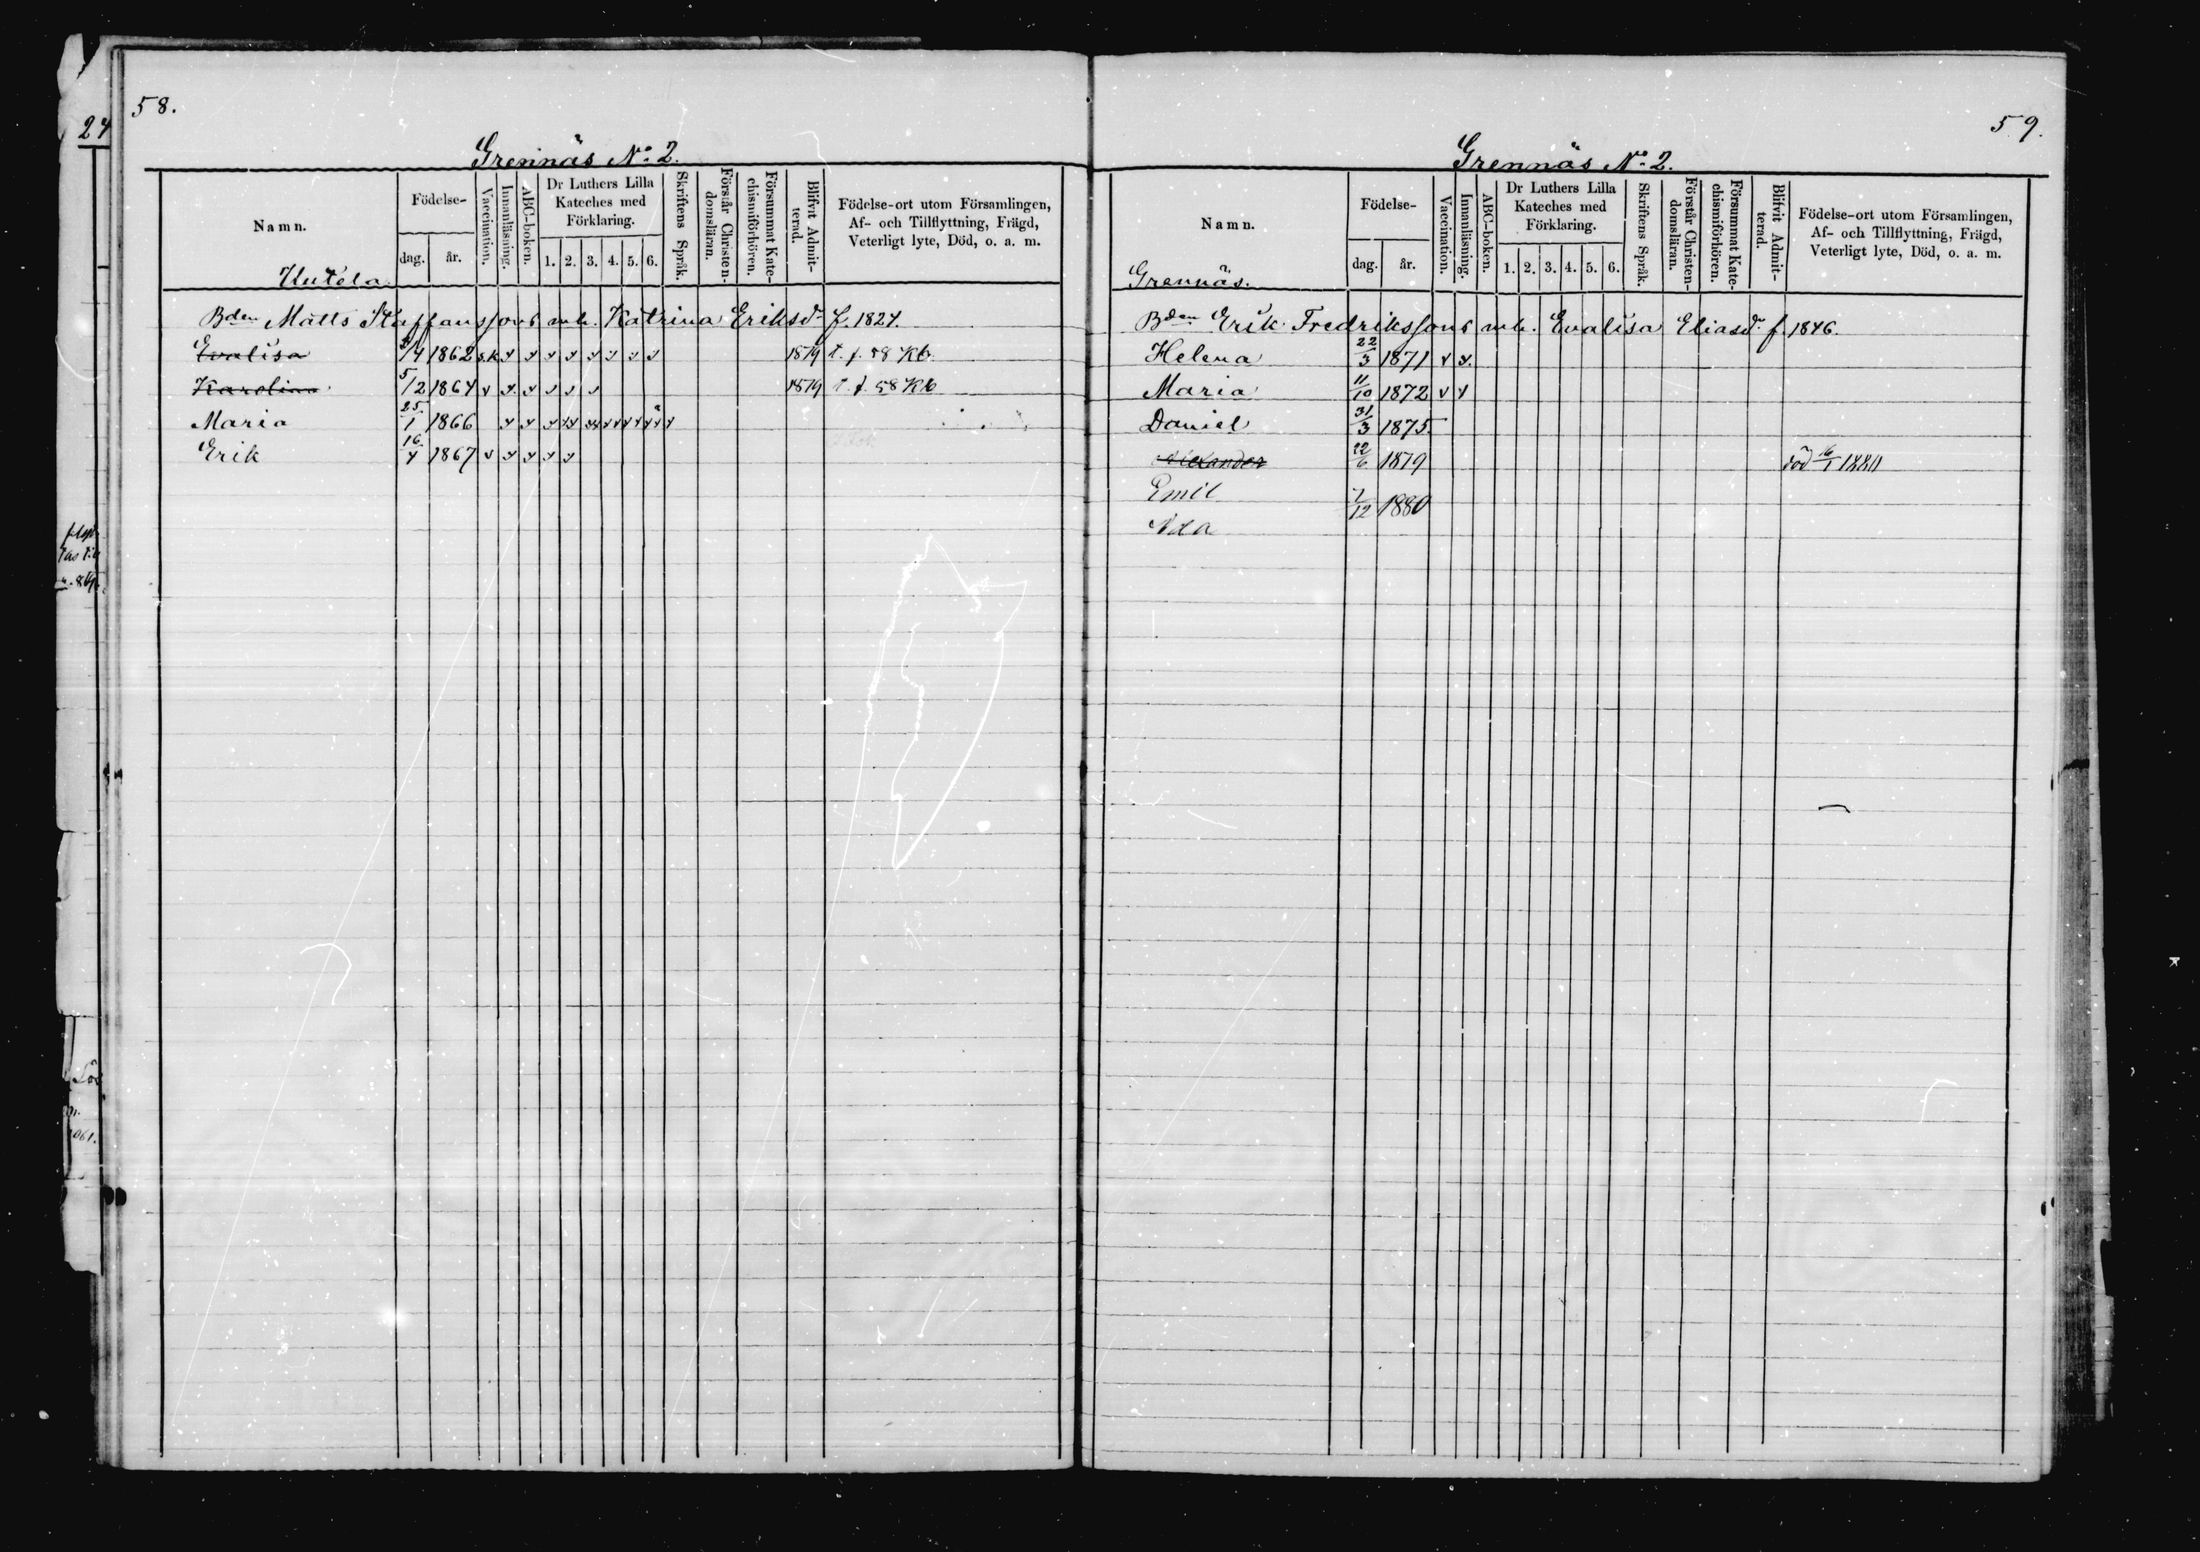 58.
Grennäs No 2.
Namn.
Födelse-
dag.
år.
Vaccination.
Innanläsning.
ABC-boken.
Dr Luthers Lilla
Kateches med
Förklaring.
1. 2. 3. 4. 5. 6.
Skriftens Språk.
Förstår Christen-
domsläran.
Försummat Kate-
chismiförhören.
Blifvit Admit-
terad.
Födelse-ort utom Församlingen,
Af- och Tillflyttning, Frägd,
Veterligt lyte, Död, o. a. m.
Bden Matts Staffanssons mh. Katrina Eriksdr f. 1824.
Evalisa /4 1862 s.k 1879 t. f. 58 Kb
Karolina 5/2 1864 1879 t. f. 58 Kb
Maria 25/1 1866
Erik 16/4 1867
59.
Grennäs No 2.
Namn.
Födelse-
dag.
år.
Vaccination.
Innanläsning.
ABC-boken.
Dr Luthers Lilla
Kateches med
Förklaring.
1. 2. 3. 4. 5. 6.
Skriftens Språk.
Förstår Christen-
domsläran.
Försummat Kate-
chismiförhören.
Blifvit Admit-
terad.
Födelse-ort utom Församlingen,
Af- och Tillflyttning, Frägd,
Veterligt lyte, Död, o. a. m.
Grennäs.
Bden Erik Fredrikssons mh. Evalisa Eliasdr f. 1846.
Helena 22/3 1871
Maria 11/10 1872
Daniel 31/3 1875.
Alexander 22/6 1879 död 16/1 1880
Emil 7/12 1880
Ida
24